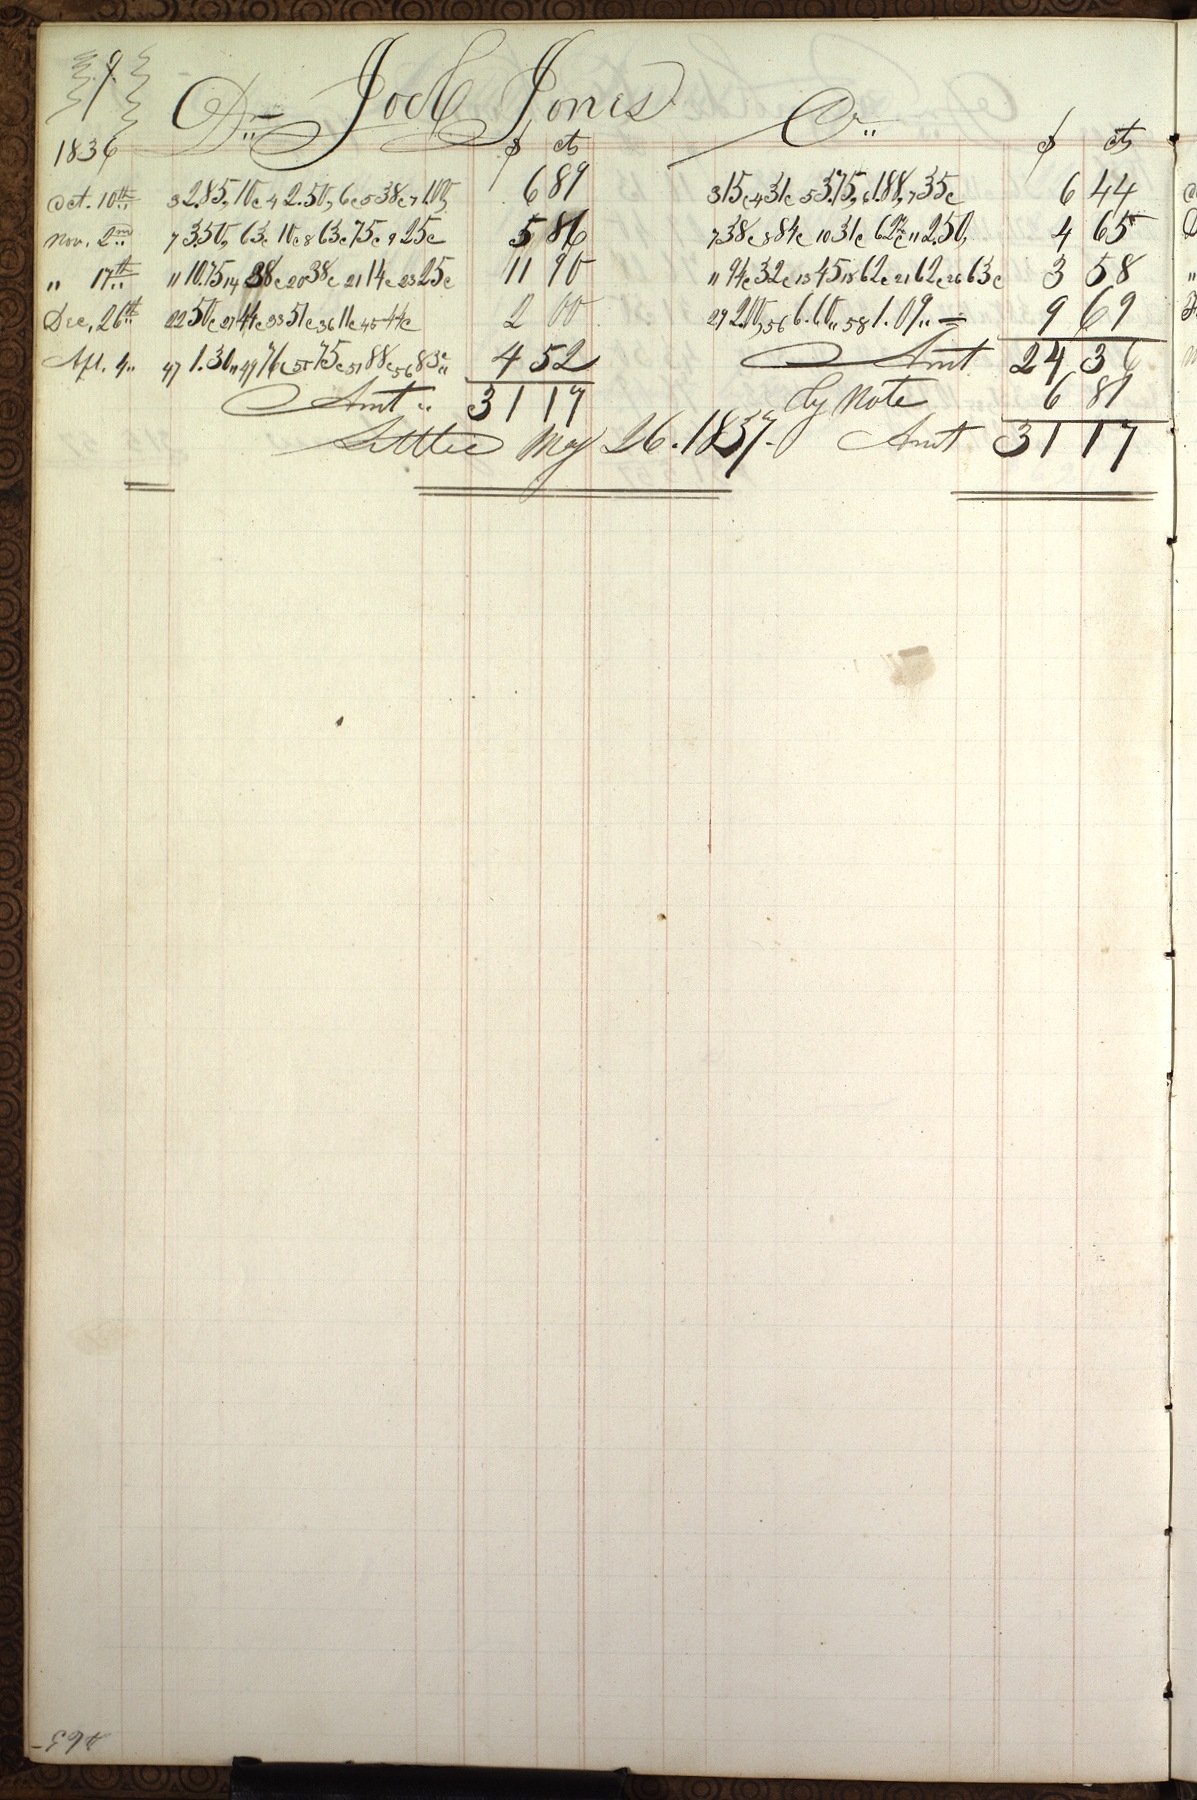 9
Dr Joel Jones Cr
1836 $ cts $ cts
Oct. 10th 3 2.85, 10c 4 2.50, 6c 5 38c 7 1.00, 6 89 3 15c 4 31c 5 3.75, 6 1.88, 7 35c 6 44
Nov. 2nd 7 3.50, 63c 10c 8 63c 75c 9 25c 5 86 7 38c 8 84c 10 31c 62c 11 2.50, 4 65
" 17th 11 10.75 14 38c 20 38c 21 14c 23 25c 11 90 11 94c 32c 13 45 18 62c 21 62c 26 63c 3 58
Dec, 26th 22 50c 27 44c 33 51c 36 11c 45 44c 2 00 29 2.00, 56 6.60,, 58 1.09,, 9 69
Apl. 4,, 47 1.30,, 49 76c 50 75c 51 88c 56 83c,, 4 52 Amt 24 36
Amt ,, 31 17 By Note 6 81
Settled May 26. 1837. Amt 31 17
463-